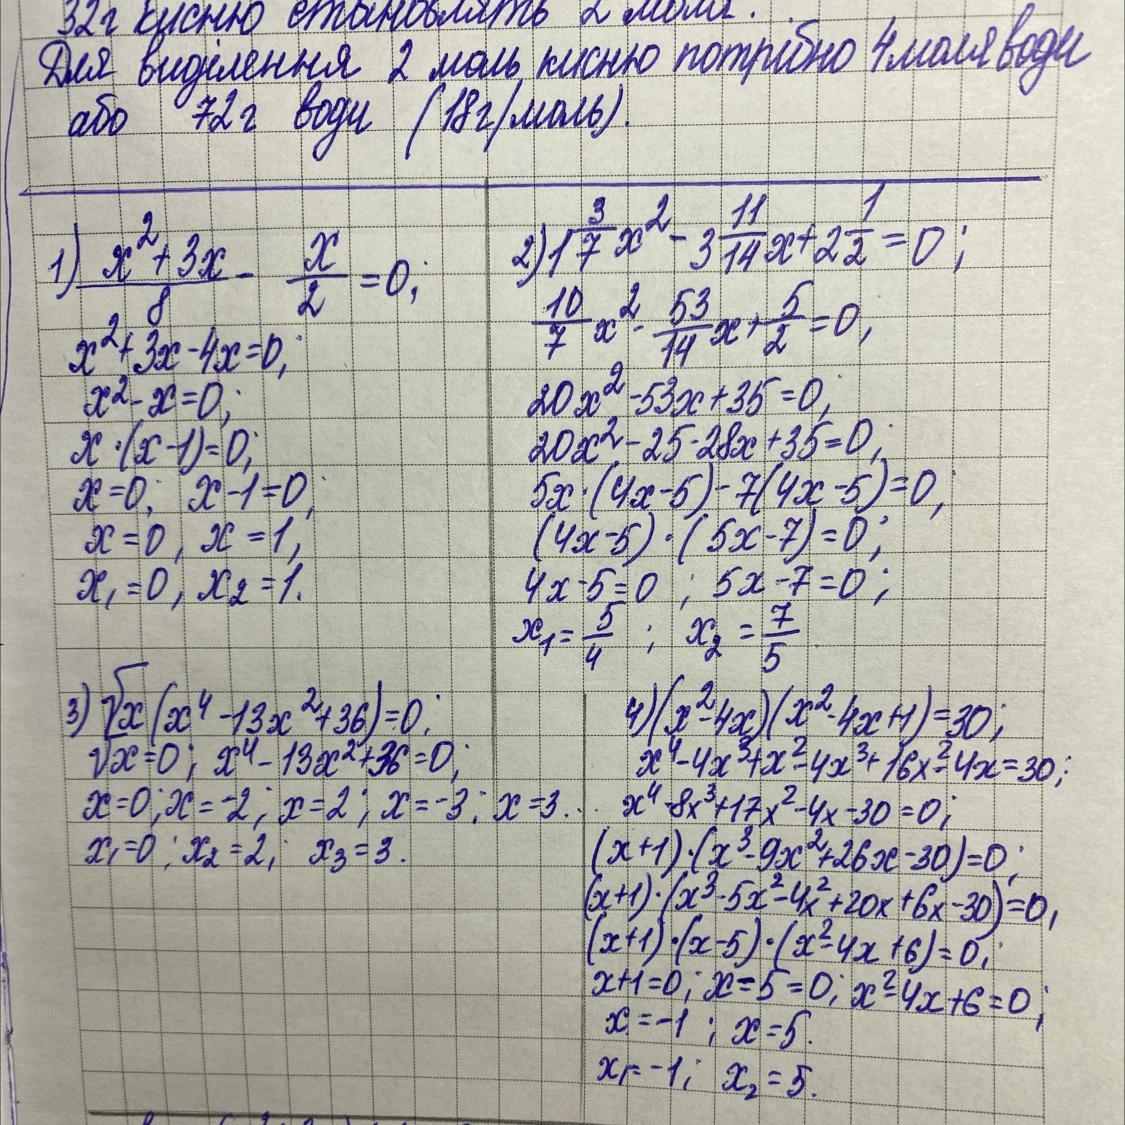 32г кисню становлять 2 моля.
Для виділення 2 моль кисню потрібно 4 моля води
або 72г води (18г/моль).
1) (x²+3x)/8 - x/2 = 0;
x²+3x-4x=0;
x²-x=0;
x·(x-1)=0;
x=0; x-1=0;
x=0, x=1,
x₁=0, x₂=1.
2) 1 3/7 x² - 3 11/14 x + 2 1/2 = 0;
10/7 x² - 53/14 x + 5/2 = 0,
20x²-53x+35=0;
20x²-25-28x+35=0;
5x·(4x-5)-7(4x-5)=0,
(4x-5)·(5x-7)=0;
4x-5=0; 5x-7=0;
x₁=5/4; x₂=7/5
3) √x(x⁴-13x²+36)=0;
√x=0; x⁴-13x²+36=0;
x=0; x=-2; x=2; x=-3; x=3.
x₁=0; x₂=2; x₃=3.
4) (x²-4x)(x²-4x+1)=30;
x⁴-4x³+x²-4x³+16x²-4x=30;
x⁴-8x³+17x²-4x-30=0;
(x+1)·(x³-9x²+26x-30)=0;
(x+1)·(x³-5x²-4x²+20x+6x-30)=0,
(x+1)·(x-5)·(x²-4x+6)=0;
x+1=0; x-5=0; x²-4x+6=0;
x=-1; x=5.
x₁=-1; x₂=5.